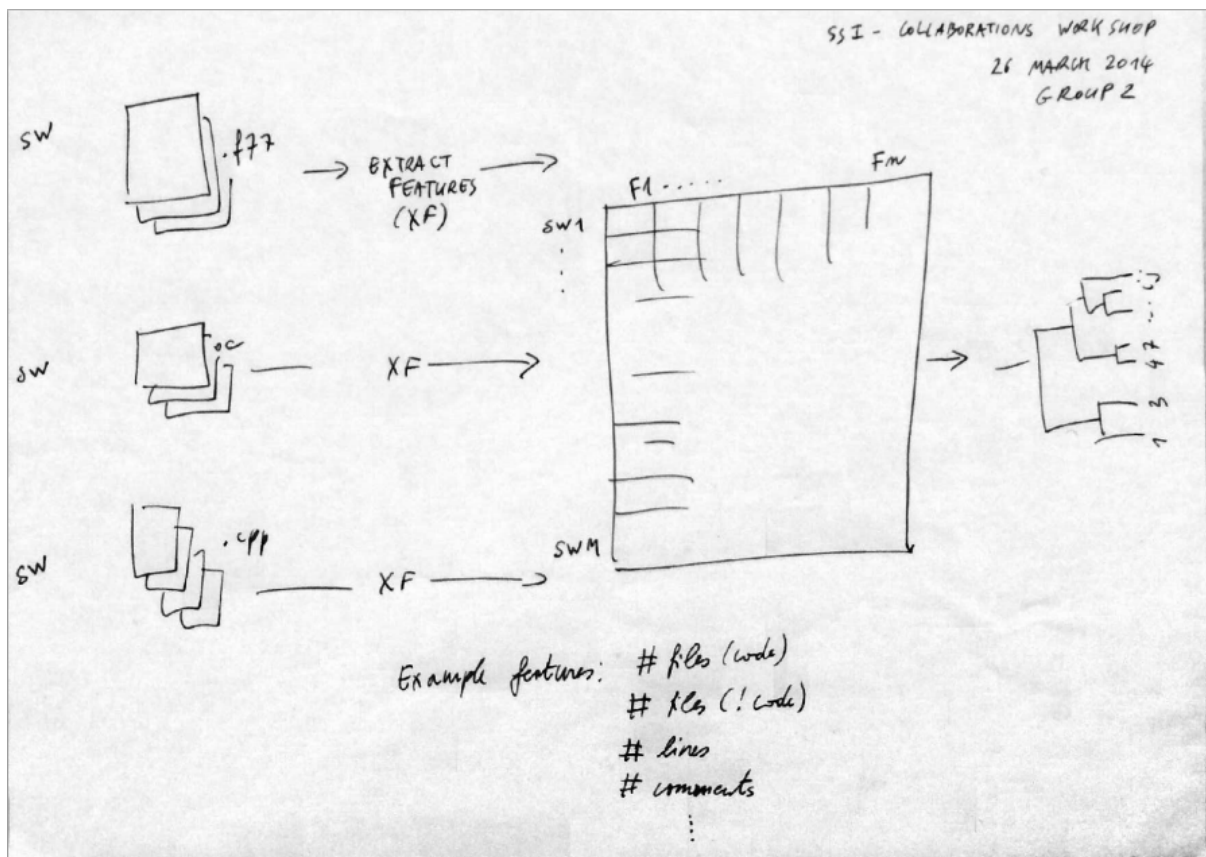 SSI - COLLABORATIONS WORKSHOP
26 MARCH 2014
GROUP 2
SW
.f77
EXTRACT
FEATURES
(XF)
F1 ......
Fn
SW1
SW
.c
XF
SW
.cpp
XF
SWM
1 3 4 7 ... ij
Example features:
# files (code)
# files (! code)
# lines
# comments